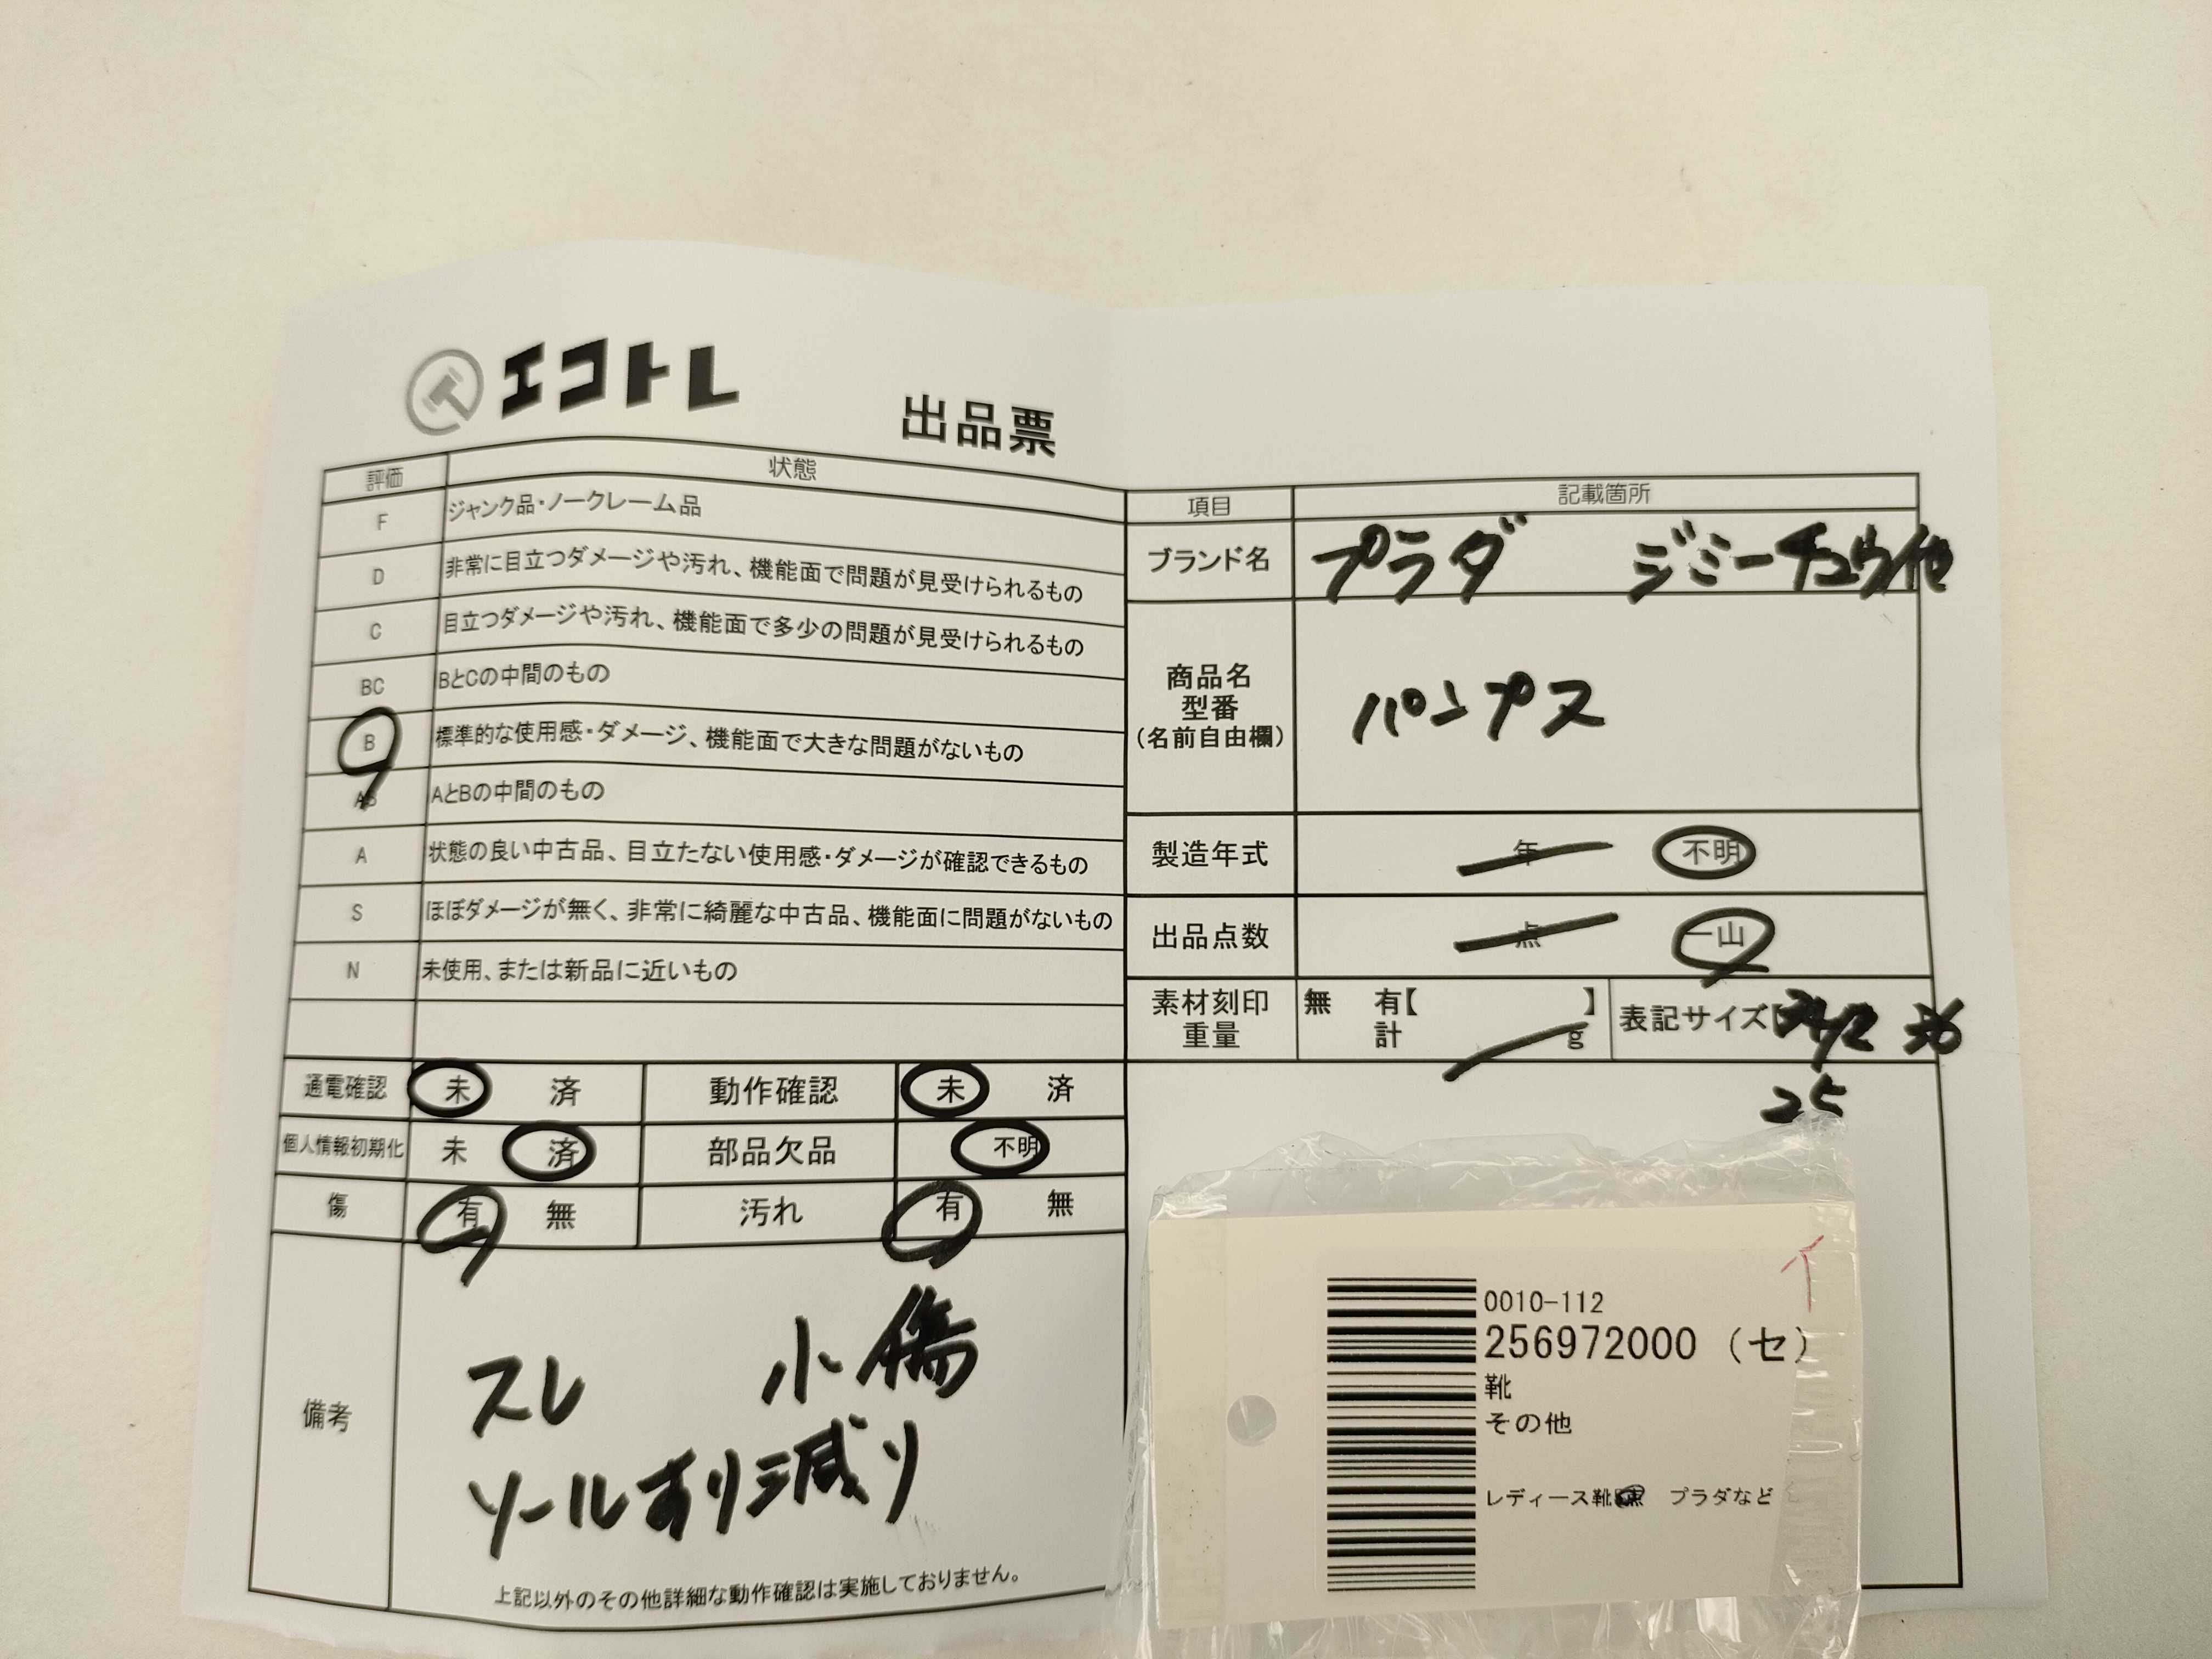 エコトレ
出品票
評価 状態
F ジャンク品・ノークレーム品
D 非常に目立つダメージや汚れ、機能面で問題が見受けられるもの
C 目立つダメージや汚れ、機能面で多少の問題が見受けられるもの
BC BとCの中間のもの
B 標準的な使用感・ダメージ、機能面で大きな問題がないもの
AB AとBの中間のもの
A 状態の良い中古品、目立たない使用感・ダメージが確認できるもの
S ほぼダメージが無く、非常に綺麗な中古品、機能面に問題がないもの
N 未使用、または新品に近いもの
通電確認 未 済 動作確認 未 済
個人情報初期化 未 済 部品欠品 不明
傷 有 無 汚れ 有 無
備考
スレ 小傷
ソールすり減り
上記以外のその他詳細な動作確認は実施しておりません。
項目 記載箇所
ブランド名 プラダ ジミーチュウ他
商品名
型番
(名前自由欄)
パンプス
製造年式 年 不明
出品点数 点 一山
素材刻印
重量
無 有【 】
計 g
表記サイズ【 36
25
イ
0010-112
256972000 (セ)
靴
その他
レディース靴 プラダなど